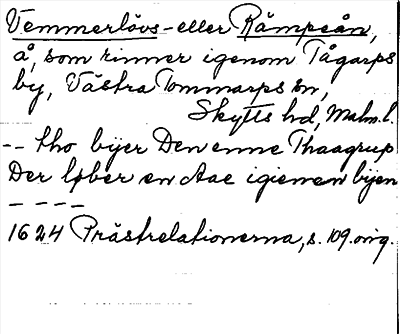 Vemmerlövs- eller Rämpeån,
å, som rinner igenom Tågarps
by, Västra Tommarps sn,
Skytts hd, Malm. l.
-- tho byer Den enne Thaagrup
Der løber en Aae igiemen byen
----
1624 Prästrelationerna, s. 109. orig.